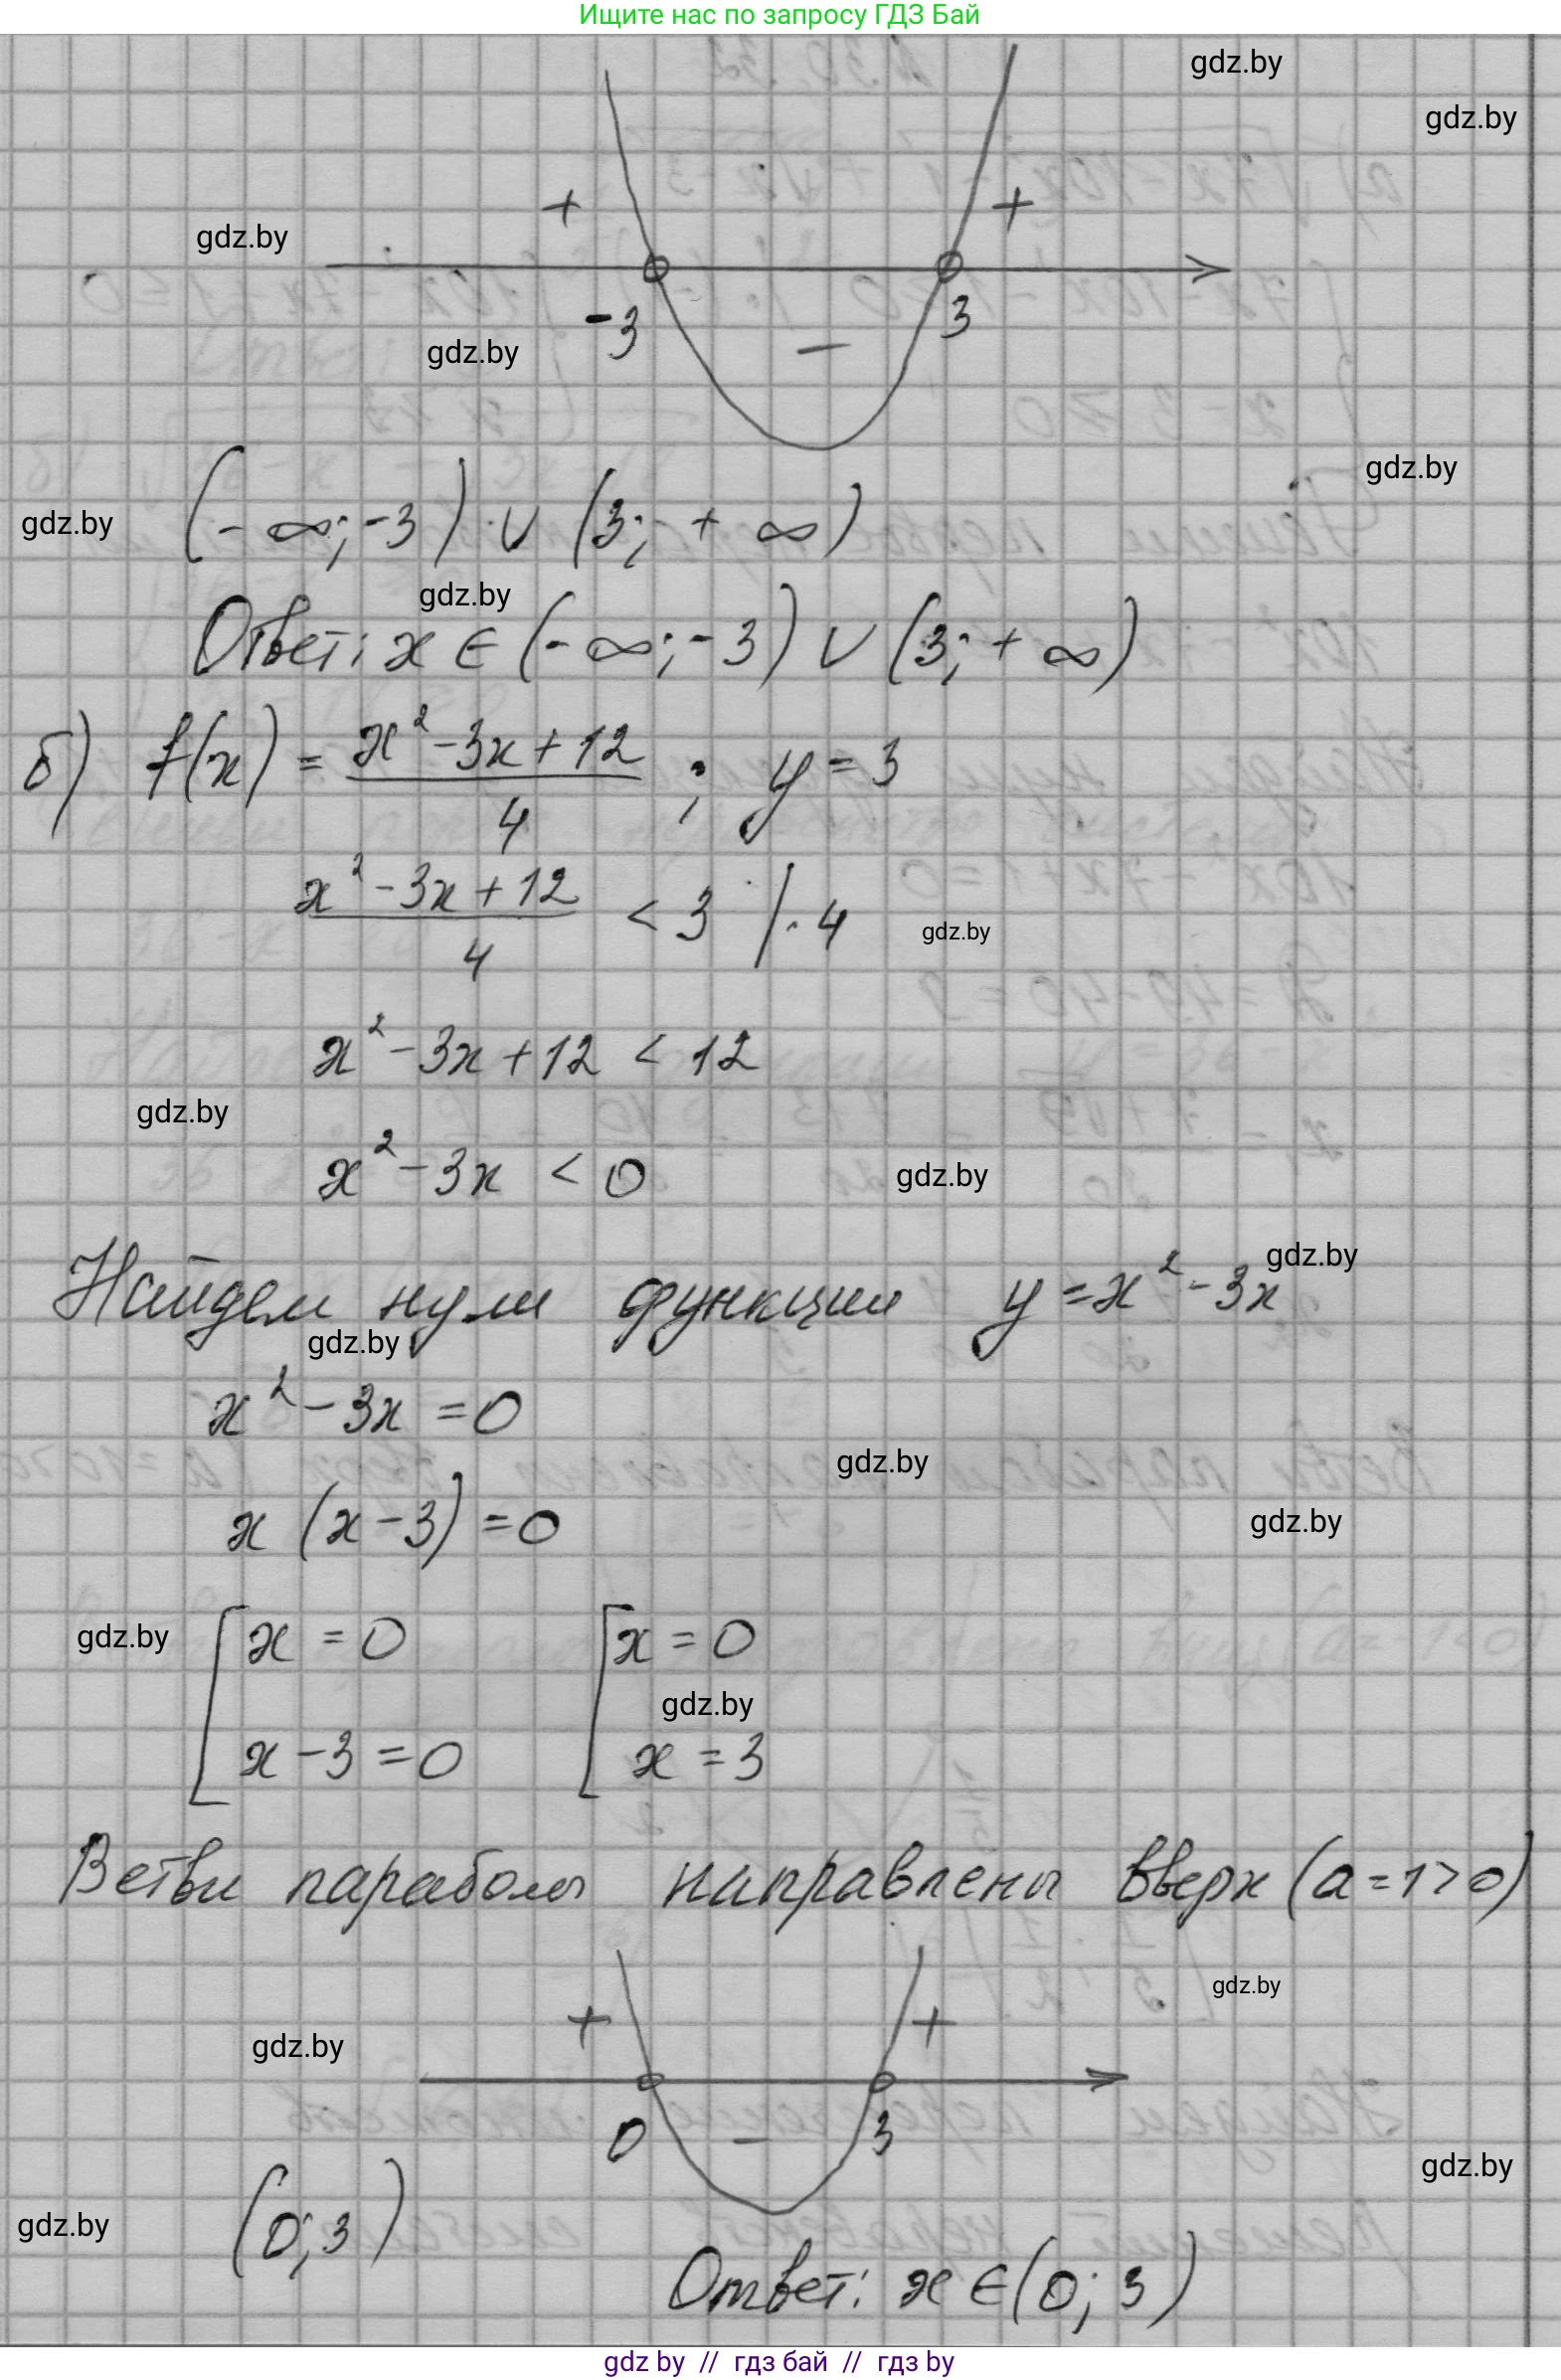 Ищите нас по запросу ГДЗ Бай
gdz.by
gdz.by
+ +
gdz.by
-3 3
gdz.by
−
gdz.by
gdz.by
(-∞; -3) ∪ (3; +∞)
gdz.by
Ответ: x ∈ (-∞; -3) ∪ (3; +∞)
б) f(x) = (x² - 3x + 12)/4 ; y = 3
(x² - 3x + 12)/4 < 3 | · 4
gdz.by
x² - 3x + 12 < 12
gdz.by
x² - 3x < 0
gdz.by
gdz.by
Найдем нули функции y = x² - 3x
gdz.by
x² - 3x = 0
gdz.by
x (x - 3) = 0
gdz.by
gdz.by
[ x = 0 [ x = 0
gdz.by
x - 3 = 0 x = 3
Ветви параболы направлены вверх (a = 1 > 0)
gdz.by
+ +
gdz.by
0 − 3
gdz.by
gdz.by
(0; 3)
Ответ: x ∈ (0; 3)
gdz by // гдз бай // гдз by